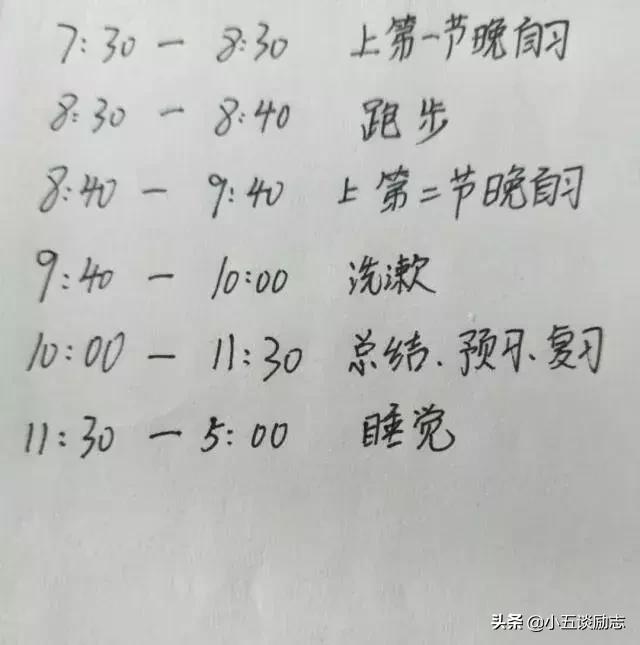 7:30 — 8:30 上第一节晚自习
8:30 — 8:40 跑步
8:40 — 9:40 上第二节晚自习
9:40 — 10:00 洗漱
10:00 — 11:30 总结、预习、复习
11:30 — 5:00 睡觉
头条 @小五谈励志